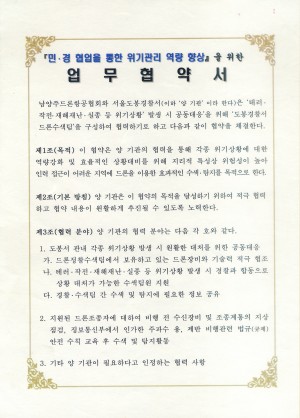 『민·경 협업을 통한 위기관리 역량 향상』을 위한
업무협약서
남양주드론항공협회와 서울도봉경찰서(이하 '양 기관' 이라 한다)은 '테러·
작전·재해재난·실종 등 위기상황' 발생 시 공동대응을 위해 '도봉경찰서
드론수색팀'을 구성하여 협력하기로 하고 다음과 같이 협약을 체결한다.
제1조(목적) 이 협약은 양 기관의 협력을 통해 각종 위기상황에 대한
역량강화 및 효율적인 상황대비를 위해 지리적 특성상 위험성이 높아
인력 접근이 어려운 지역에 드론을 이용한 효과적인 수색·탐지를 목적으로 한다.
제2조(기본 방침) 양 기관은 이 협약의 목적을 달성하기 위하여 적극 협력
하고 협약 내용이 원활하게 추진될 수 있도록 노력한다.
제3조(협력 분야) 양 기관의 협력 분야는 다음 각 호와 같다.
1. 도봉서 관내 각종 위기상황 발생 시 원활한 대처를 위한 공동대응
가. 드론수색팀에서 보유하고 있는 드론장비와 기술력 적극 협조
나. 테러·작전·재해재난·실종 등 위기상황 발생 시 경찰과 합동으로
상황 대처가 가능한 수색팀원 지원
다. 경찰·수색팀 간 수색 및 탐지에 필요한 정보 공유
2. 지원된 드론조종자에 대하여 비행 전 수신장비 및 조종계통의 지상
점검, 정보통신부에서 인가한 주파수 용, 제반 비행관련 법규(규제)
안전 수칙 교육 후 수색 및 탐지활동
3. 기타 양 기관이 필요하다고 인정하는 협력 사항